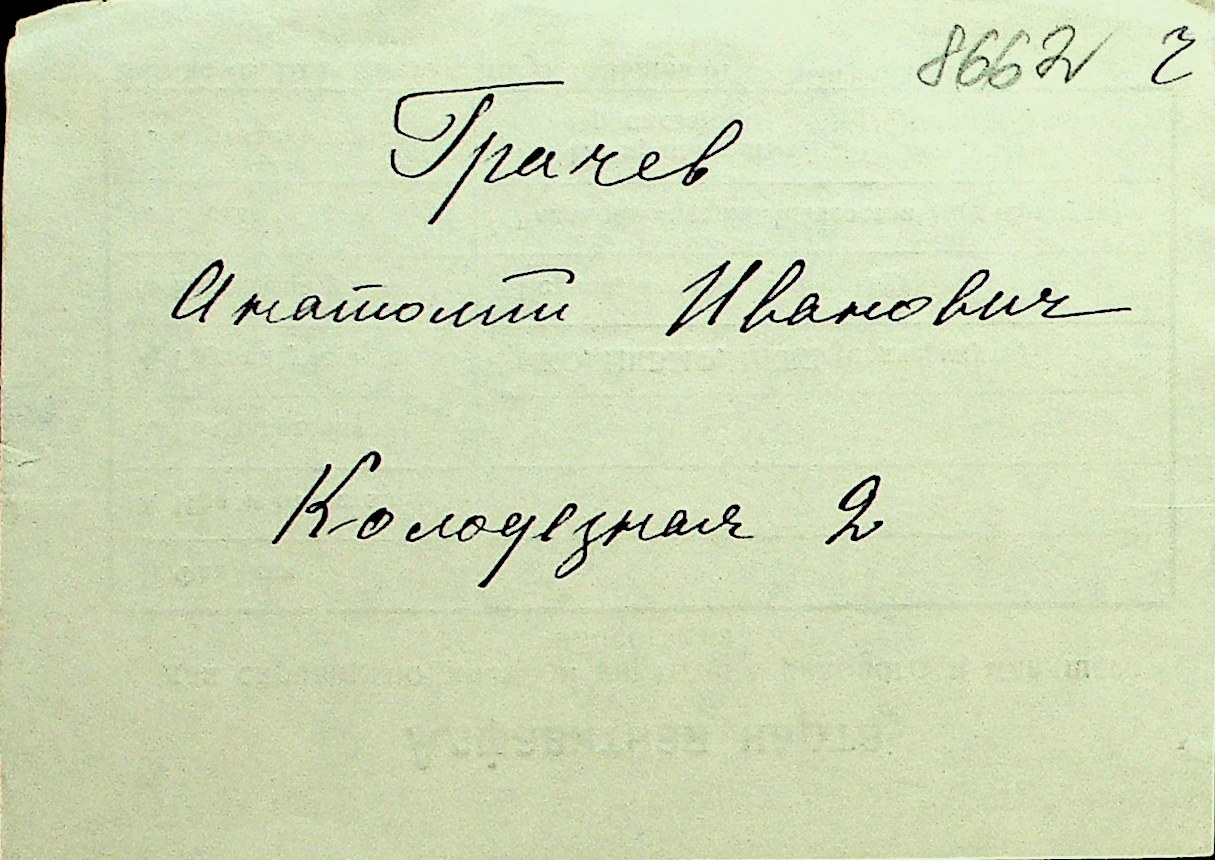 8662 г
Грачев
Анатолий Иванович
Колодезная 2